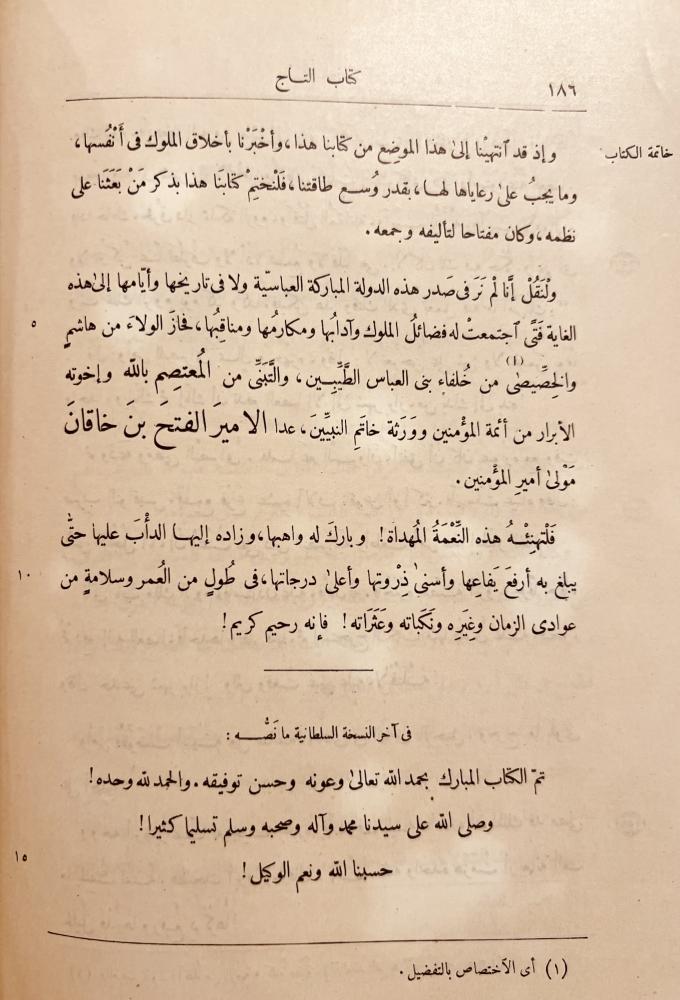 ١٨٦
كتاب التاج
خاتمة الكتاب
وإذ قد ٱنتهيْنا إلىٰ هذا الموضِع من كتابنا هذا، وأخْبَرْنا بأخلاق الملوك فى أَنْفُسها،
وما يجبُ علىٰ رعاياها لهـا، بقدر وُسـع طاقتنا، فَلْنختِمْ كتابَنا هذا بذكر مَنْ بَعَثَنا على
نظمه، وكان مفتاحا لتأليفه وجمعه.
ولْنَقُلْ إنَّا لَمْ نَرَ فى صَدر هذه الدولة المباركة العباسيّة ولا فى تاريخها وأيّامها إلىٰ هذه
الغاية فَتًى ٱجتمعتْ له فضائلُ الملوك وآدابُها ومكارمُها ومناقِبُها، فحازَ الولاءَ من هاشمٍ
٥
والخِصِّيصىٰ (١) من خُلفاء بنى العباس الطَّيِّبِــين، والتَّبَنِّى من المُعتصِم بالله وإخوته
الأبرار من أئمة المؤْمنين ووَرَثة خاتَمِ النبيِّينَ، عدا الاميرَ الفتحَ بنَ خاقانَ
مَوْلىٰ أميرِ المؤْمنين.
فَلْتَهْنِئْــهُ هذه النِّعْمَةُ المُهداة! وبارَكَ له واهبها، وزاده إليهـا الدأْبَ عليها حتّٰى
يبلغ به أرفعَ يَفاعِها وأسنىٰ ذِرْوتها وأعلىٰ درجاتها، فى طُولٍ من العُمر وسلامةٍ من
١٠
عوادى الزمان وغِيَرِه ونَكَباته وعَثَرَاته! فإنه رحيم كريم!
فى آخر النسخة السلطانية ما نَصُّــه :
تمّ الكتاب المبارك بحمد الله تعالىٰ وعونه وحسن توفيقه. والحمد لله وحده!
وصلى الله على سيدنا محمد وآله وصحبه وسلم تسليما كثيرا!
حسبنا الله ونعم الوكيل!
١٥
(١) أى الاَختصاص بالتفضيل.